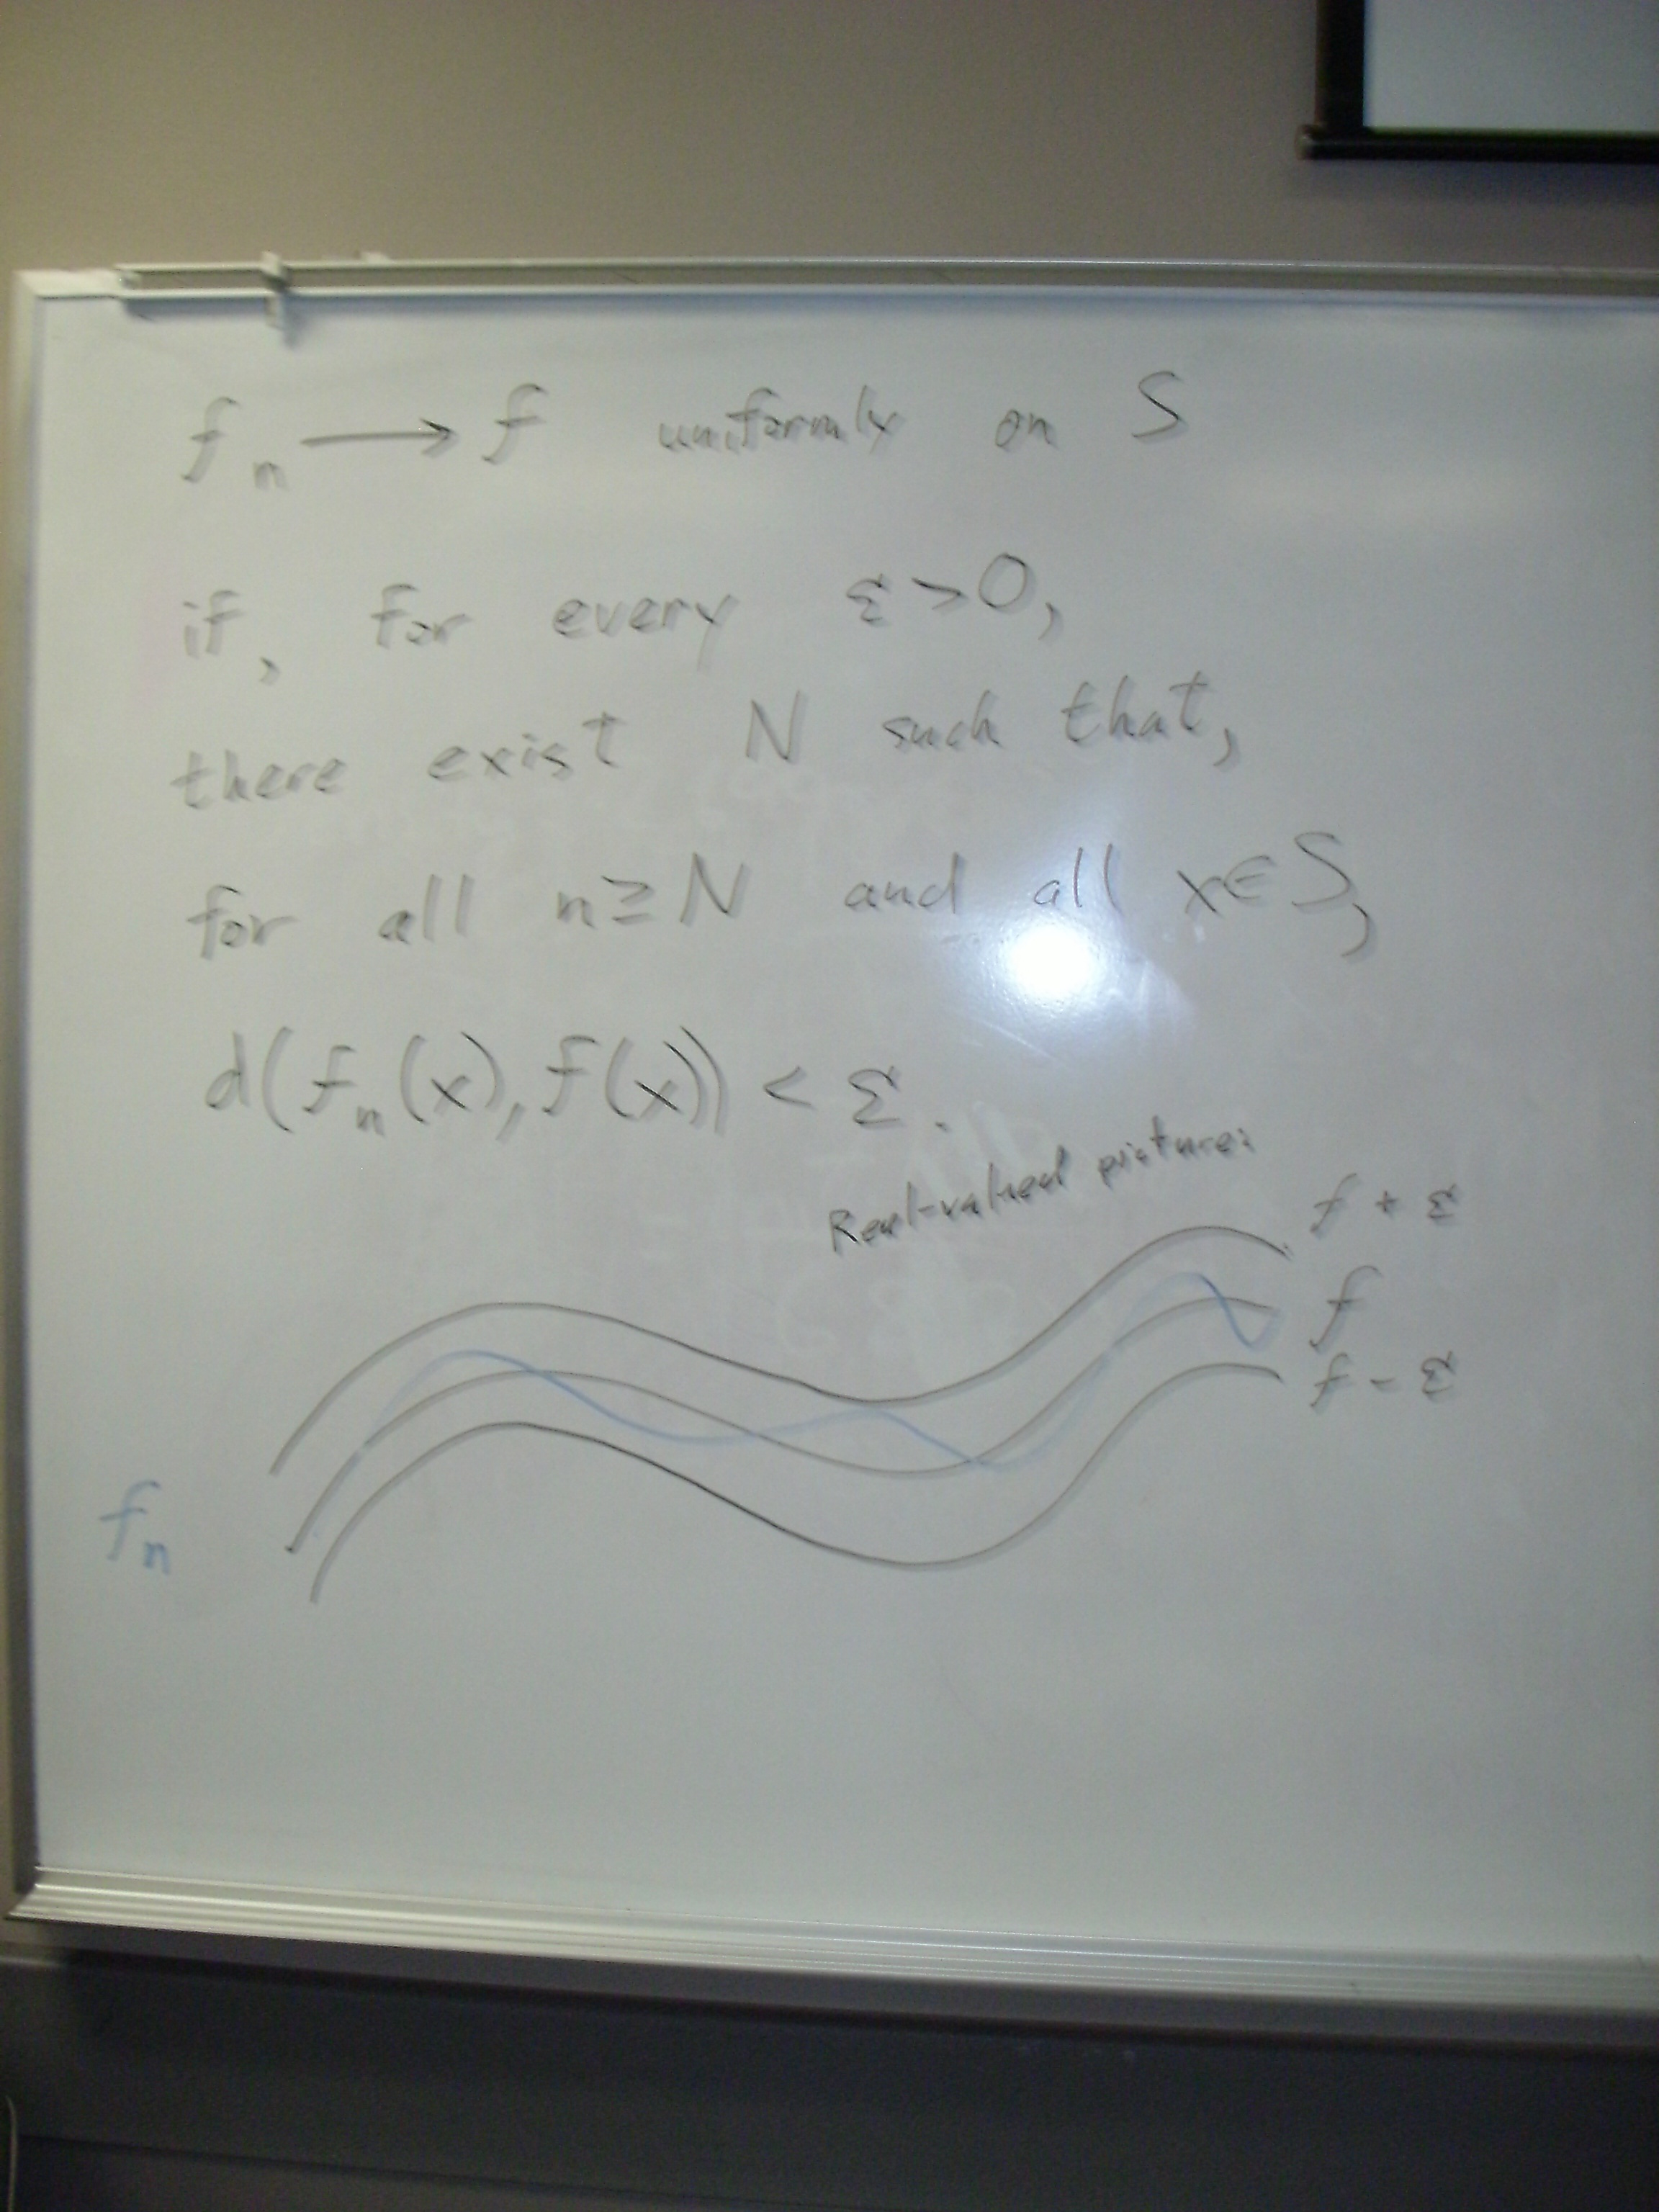 fₙ → f uniformly on S
if, for every ε>0,
there exist N such that,
for all n≥N and all x∈S,
d(fₙ(x), f(x)) < ε.
Real-valued picture:
f + ε
f
f - ε
fₙ